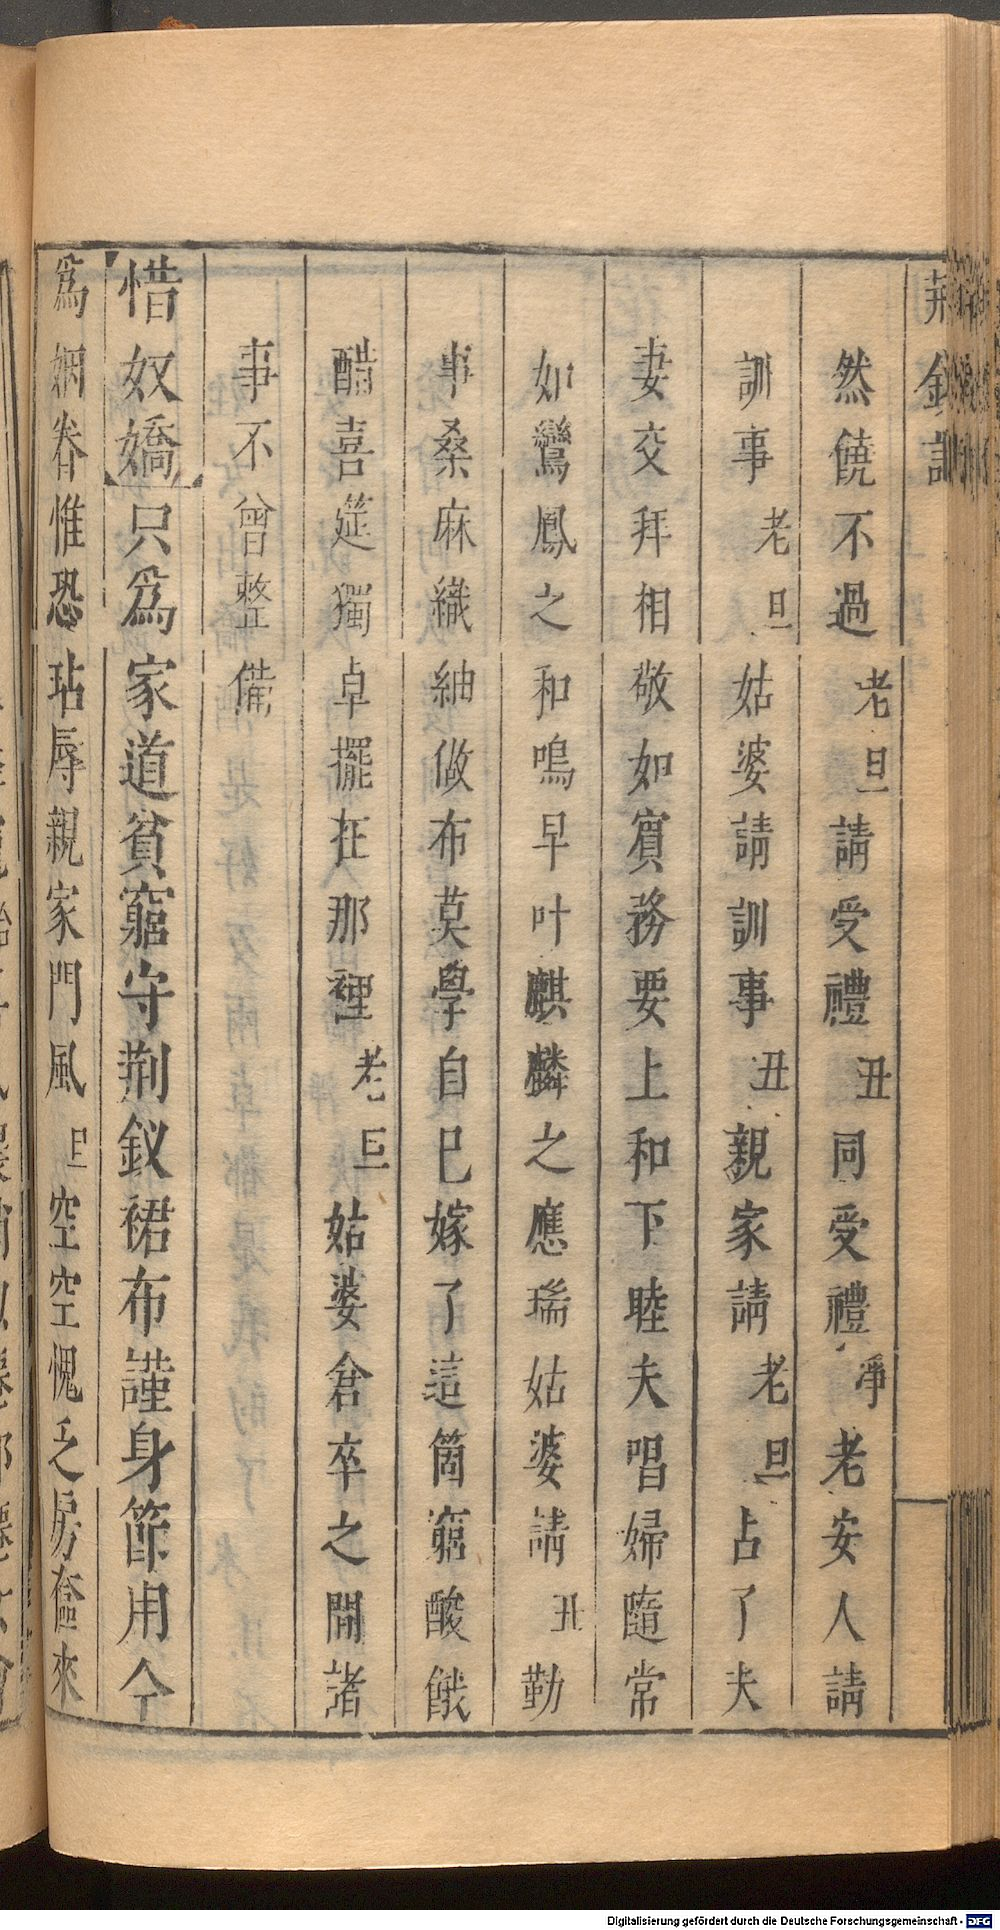 荊釵記
然饒不過老旦請受禮丑同受禮淨老安人請
訓事老旦姑婆請訓事丑親家請老旦占了夫
妻交拜相敬如賓務要上和下睦夫唱婦隨常
如鸞鳳之和鳴早叶麒麟之應瑞姑婆請丑勤
事桑麻織紬做布莫學自己嫁了這箇窮酸餓
醋喜筵獨卓擺在那裡老旦姑婆倉卒之間諸
事不曾整備
惜奴嬌只爲家道貧窮守荆釵裙布謹身節用今
爲姻眷惟恐玷辱親家門風旦空空愧乏房奩來
Digitalisierung gefördert durch die Deutsche Forschungsgemeinschaft - DFG